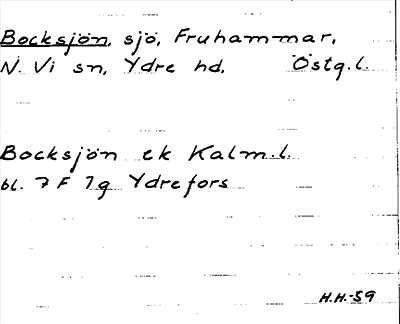 Bocksjön, sjö, Fruhammar,
N. Vi sn, Ydre hd, Östg.l.
Bocksjön ek Kalm.l.
bl. 7 F 7g Ydrefors
H.H.-59